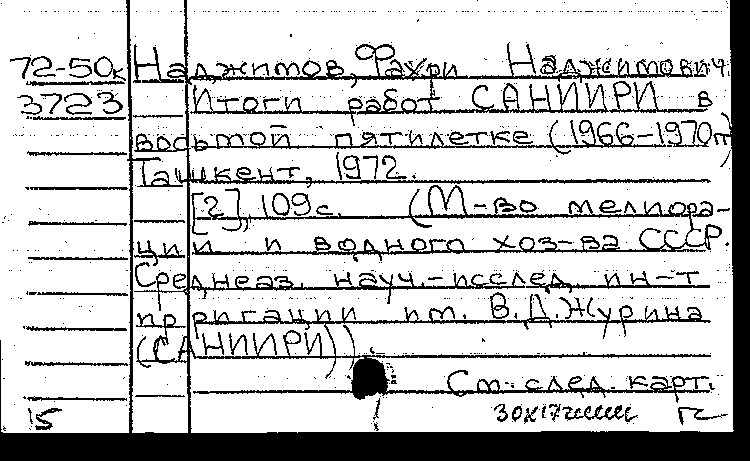 72-50к Наджимов, Фахри Наджимович.
3723 Итоги работ САНИИРИ в
восьмой пятилетке (1966-1970гг)
Ташкент, 1972.
[2], 109с. (М-во мелиора-
ции и водного хоз-ва СССР.
Среднеаз. науч.-исслед. ин-т
ирригации им. В.Д.Журина
(САНИИРИ))
См. след. карт.
15 30х17